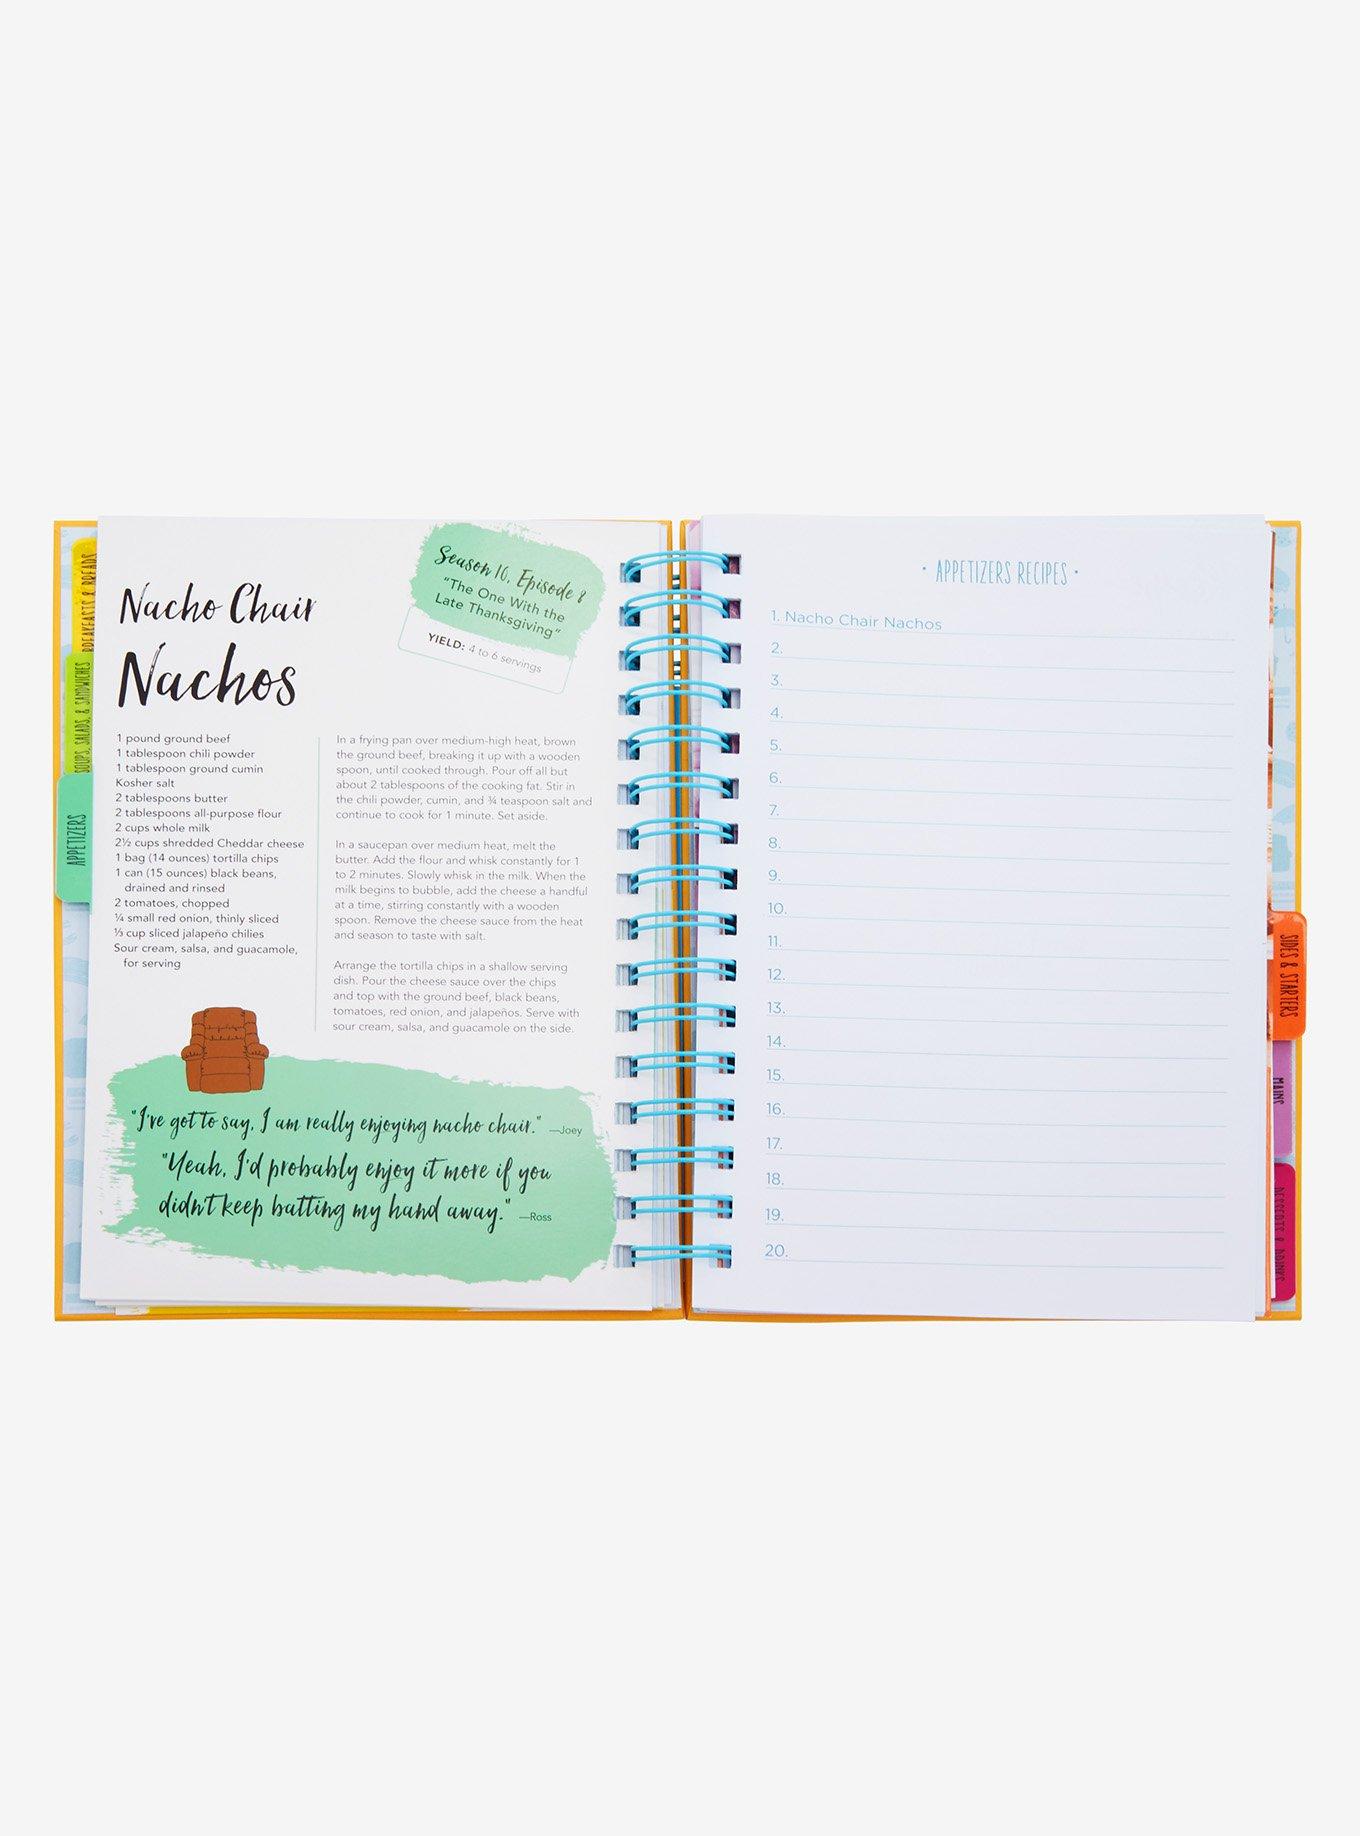 BREAKFASTS & BREADS
SOUPS, SALADS, & SANDWICHES
APPETIZERS
Nacho Chair
Nachos
Season 10, Episode 8
"The One With the
Late Thanksgiving"
YIELD: 4 to 6 servings
1 pound ground beef
1 tablespoon chili powder
1 tablespoon ground cumin
Kosher salt
2 tablespoons butter
2 tablespoons all-purpose flour
2 cups whole milk
2½ cups shredded Cheddar cheese
1 bag (14 ounces) tortilla chips
1 can (15 ounces) black beans,
drained and rinsed
2 tomatoes, chopped
¼ small red onion, thinly sliced
⅓ cup sliced jalapeño chilies
Sour cream, salsa, and guacamole,
for serving
In a frying pan over medium-high heat, brown
the ground beef, breaking it up with a wooden
spoon, until cooked through. Pour off all but
about 2 tablespoons of the cooking fat. Stir in
the chili powder, cumin, and ¾ teaspoon salt and
continue to cook for 1 minute. Set aside.
In a saucepan over medium heat, melt the
butter. Add the flour and whisk constantly for 1
to 2 minutes. Slowly whisk in the milk. When the
milk begins to bubble, add the cheese a handful
at a time, stirring constantly with a wooden
spoon. Remove the cheese sauce from the heat
and season to taste with salt.
Arrange the tortilla chips in a shallow serving
dish. Pour the cheese sauce over the chips
and top with the ground beef, black beans,
tomatoes, red onion, and jalapeños. Serve with
sour cream, salsa, and guacamole on the side.
"I've got to say, I am really enjoying nacho chair." —Joey
"Yeah, I'd probably enjoy it more if you
didn't keep batting my hand away." —Ross
• APPETIZERS RECIPES •
1. Nacho Chair Nachos
2.
3.
4.
5.
6.
7.
8.
9.
10.
11.
12.
13.
14.
15.
16.
17.
18.
19.
20.
SIDES & STARTERS
MAINS
DESSERTS & DRINKS